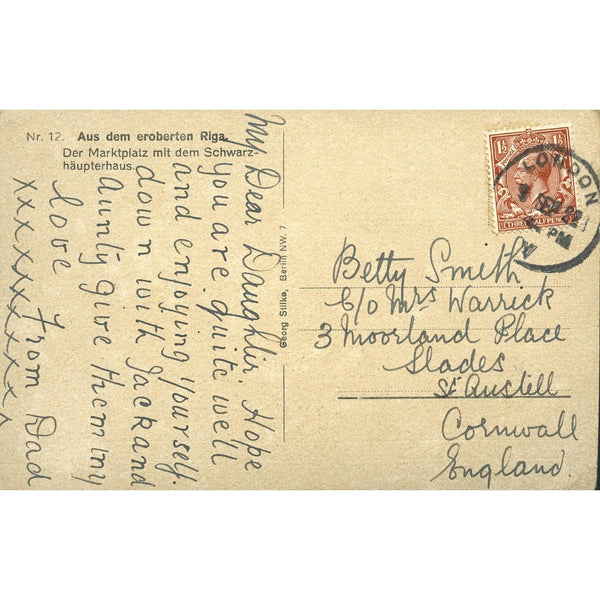 Nr. 12. Aus dem eroberten Riga.
Der Marktplatz mit dem Schwarz-
häupterhaus.
My Dear Daughter. Hope
you are quite well
and enjoying yourself.
down with Jack and
Aunty give them my
love From Dad
xxxxxxxxxx
Georg Stilke, Berlin NW. 7
1½
THREE HALF PENCE
LONDON
PM
Betty Smith
C/o Mrs Warrick
3 Moorland Place
Slades
St Austell
Cornwall
England.